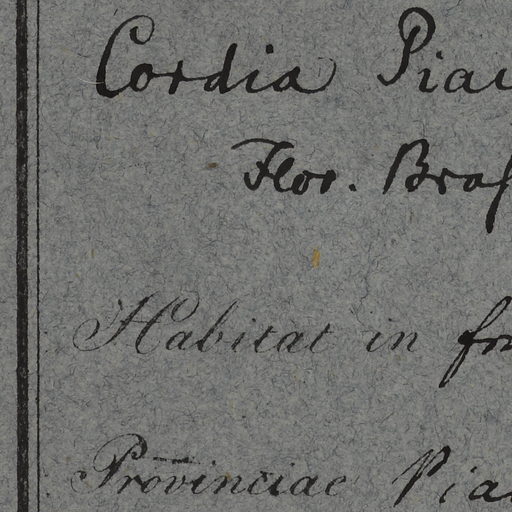 Cordia Piau
Flor. Bras
Habitat in
Provinciae Piau